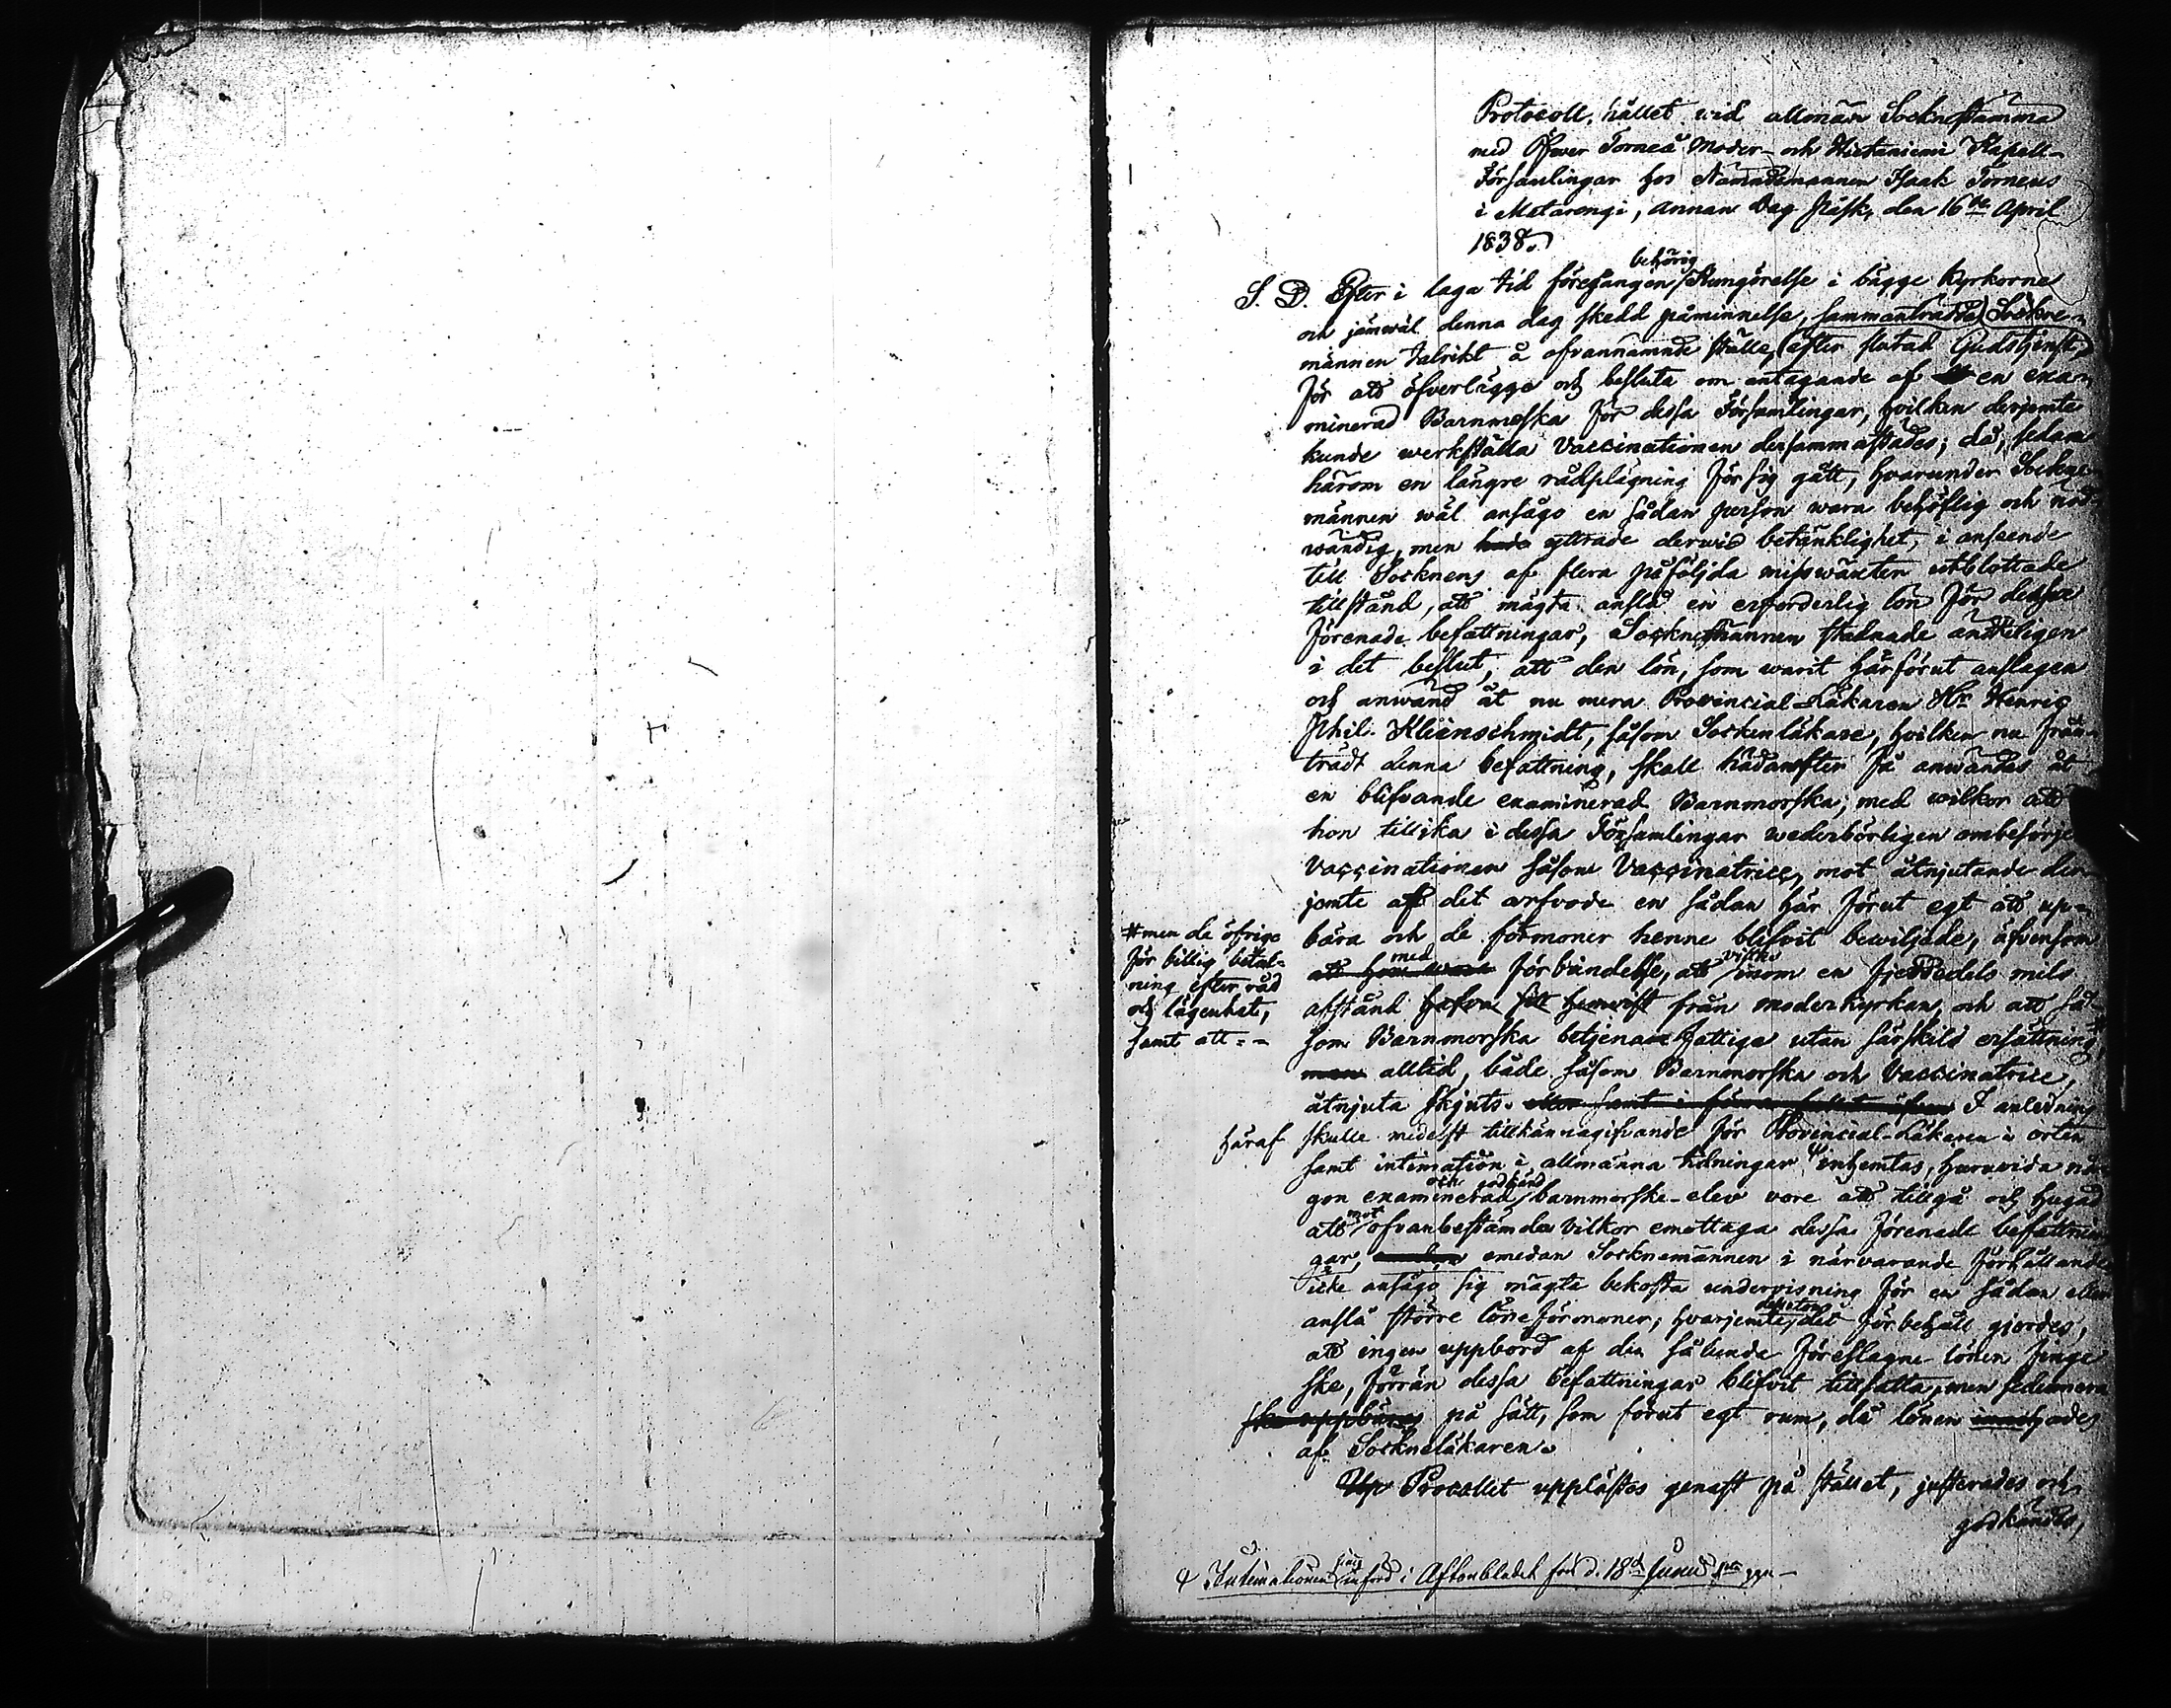 Protocoll, hållet wid allmän Sockne stämma
med Öfwer Torneå Moder- och Hietaniemi Kapell-
Församlingar hos Nämndemannen Isaak Torneus
i Matarengi, Annan Dag Påsk, den 16de April
1838.
behörig
S. D. Efter i laga tid föregången Kungörelse i bägge Kyrkorne
och jämwäl denna dag skedd påminnelse, sammanträdde Sockne-
männen talrikt å ofvannämnde ställe, efter slutad Gudstjenst,
för att öfverlägga och besluta om antagande af en exa-
minerad Barnmorska för dessa Församlingar, hvilken derjemte
kunde werkställa Vaccinationen dersammastädes; då, sedan
härom en längre rådplägning för sig gått, hvarunder Sockne-
männen wäl ansågo en sådan person wara behöflig och nöd-
wändig, men hade yttrade derwid betänklighet, i anseende
till Socknens af flera påföljda misswäxter utblottade
tillstånd, att mägta anslå en erforderlig lön för dessa
förenade befattningar, Socknemännen stadnade ändteligen
i det beslut, att den lön, som warit härförut anslagen
och anwänd åt nu mera Provincial-Läkaren Hr Henric
Phil. Kleinschmidt, såsom Sockenläkare, hvilken nu från-
trädt denna befattning, skall hädanefter få anwändas åt
en blifvande examinerad Barnmorska, med wilkor att
hon tillika i dessa Församlingar wederbörligen ombesörjer
Vaccinationen såsom Vaccinatrice, mot åtnjutande der-
jemte af det arfvode en sådan här förut egt att up-
bära och de förmoner henne blifvit bewiljade, äfvensom
med
att hon wara förbindelse, att vistas inom en fjerdedels mils
afstånd hafva sitt hemvist från moderkyrkan, och att så-
som Barnmorska betjena fattiga utan särskild ersättning #
# men de öfrige
för billig betal-
ning efter råd
och lägenhet,
samt att - -
men alltid, både såsom Barnmorska och Vaccinatrice,
åtnjuta skjuts. I anledning
häraf skulle medelst tillkännagifvande för Provincial-Läkaren i orten
samt intimation i allmänna tidningar inhemtas, huruvida nå-
och godkänd
gon examinerad barnmorske-elev vore att tillgå och hugad
mot
att ofvanbestämda vilkor emottaga dessa förenade befattnin-
gar, emedan Socknemännen i närvarande förhållande
icke ansågo sig mägta bekosta undervisning för en sådan eller
anslå större löneförmoner; hvarjemte det förbehåll gjordes,
att ingen uppbörd af den sålunda föreslagne lönen finge
ske, förrän dessa befattningar blifvit tillsatta, men sedermera
ske uppbäras på sätt, som förut egt rum, då lönen innehades
af Sockneläkaren.
Protocollet upplästes genast på stället, justerades och
godkändes,
Intimationen införd i Aftonbladet för d. 18de Junii